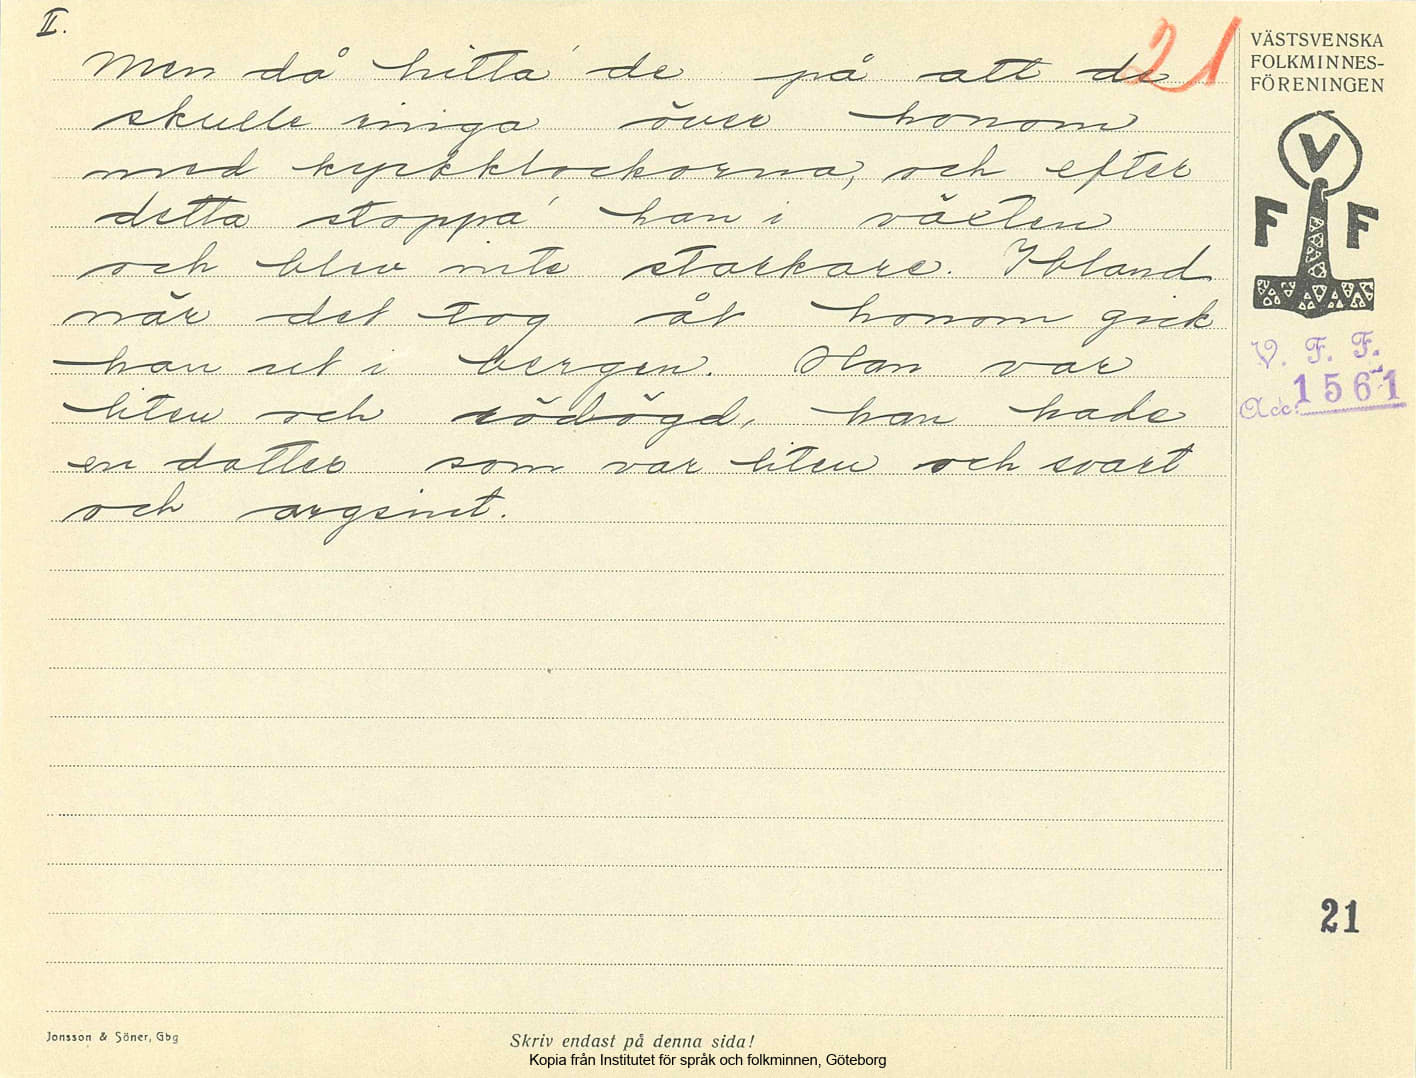 II.
21
Men då hitta' de på att de
skulle ringa över honom
med kyrkklockorna, och efter
detta stoppa' han i växten
och blev inte starkare. Ibland
när det tog åt honom gick
han ut i bergen. Han var
liten och rödögd, han hade
en dotter som var liten och svart
och argsint.
VÄSTSVENSKA
FOLKMINNES-
FÖRENINGEN
V
F F
V. F. F.
Acc. 1561
21
Jonsson & Söner, Gbg
Skriv endast på denna sida!
Kopia från Institutet för språk och folkminnen, Göteborg